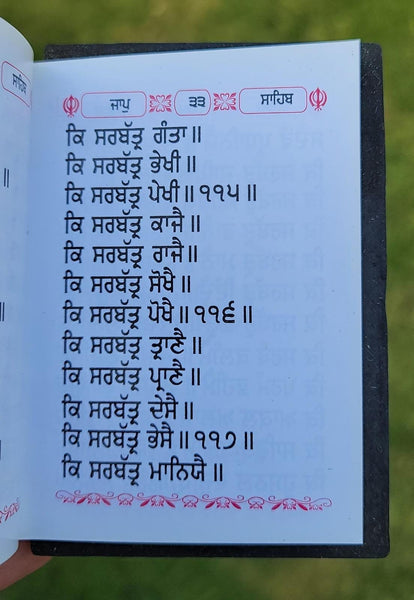 ਸਾਹਿਬ
ਜਾਪੁ ੩੩ ਸਾਹਿਬ
ਕਿ ਸਰਬੱਤ੍ਰ ਗੰਤਾ॥
ਕਿ ਸਰਬੱਤ੍ਰ ਭੇਖੀ॥
ਕਿ ਸਰਬੱਤ੍ਰ ਪੇਖੀ॥੧੧੫॥
ਕਿ ਸਰਬੱਤ੍ਰ ਕਾਜੈ॥
ਕਿ ਸਰਬੱਤ੍ਰ ਰਾਜੈ॥
ਕਿ ਸਰਬੱਤ੍ਰ ਸੋਖੈ॥
ਕਿ ਸਰਬੱਤ੍ਰ ਪੋਖੈ॥੧੧੬॥
ਕਿ ਸਰਬੱਤ੍ਰ ਤ੍ਰਾਣੈ॥
ਕਿ ਸਰਬੱਤ੍ਰ ਪ੍ਰਾਣੈ॥
ਕਿ ਸਰਬੱਤ੍ਰ ਦੇਸੈ॥
ਕਿ ਸਰਬੱਤ੍ਰ ਭੇਸੈ॥੧੧੭॥
ਕਿ ਸਰਬੱਤ੍ਰ ਮਾਨਿਯੈ॥